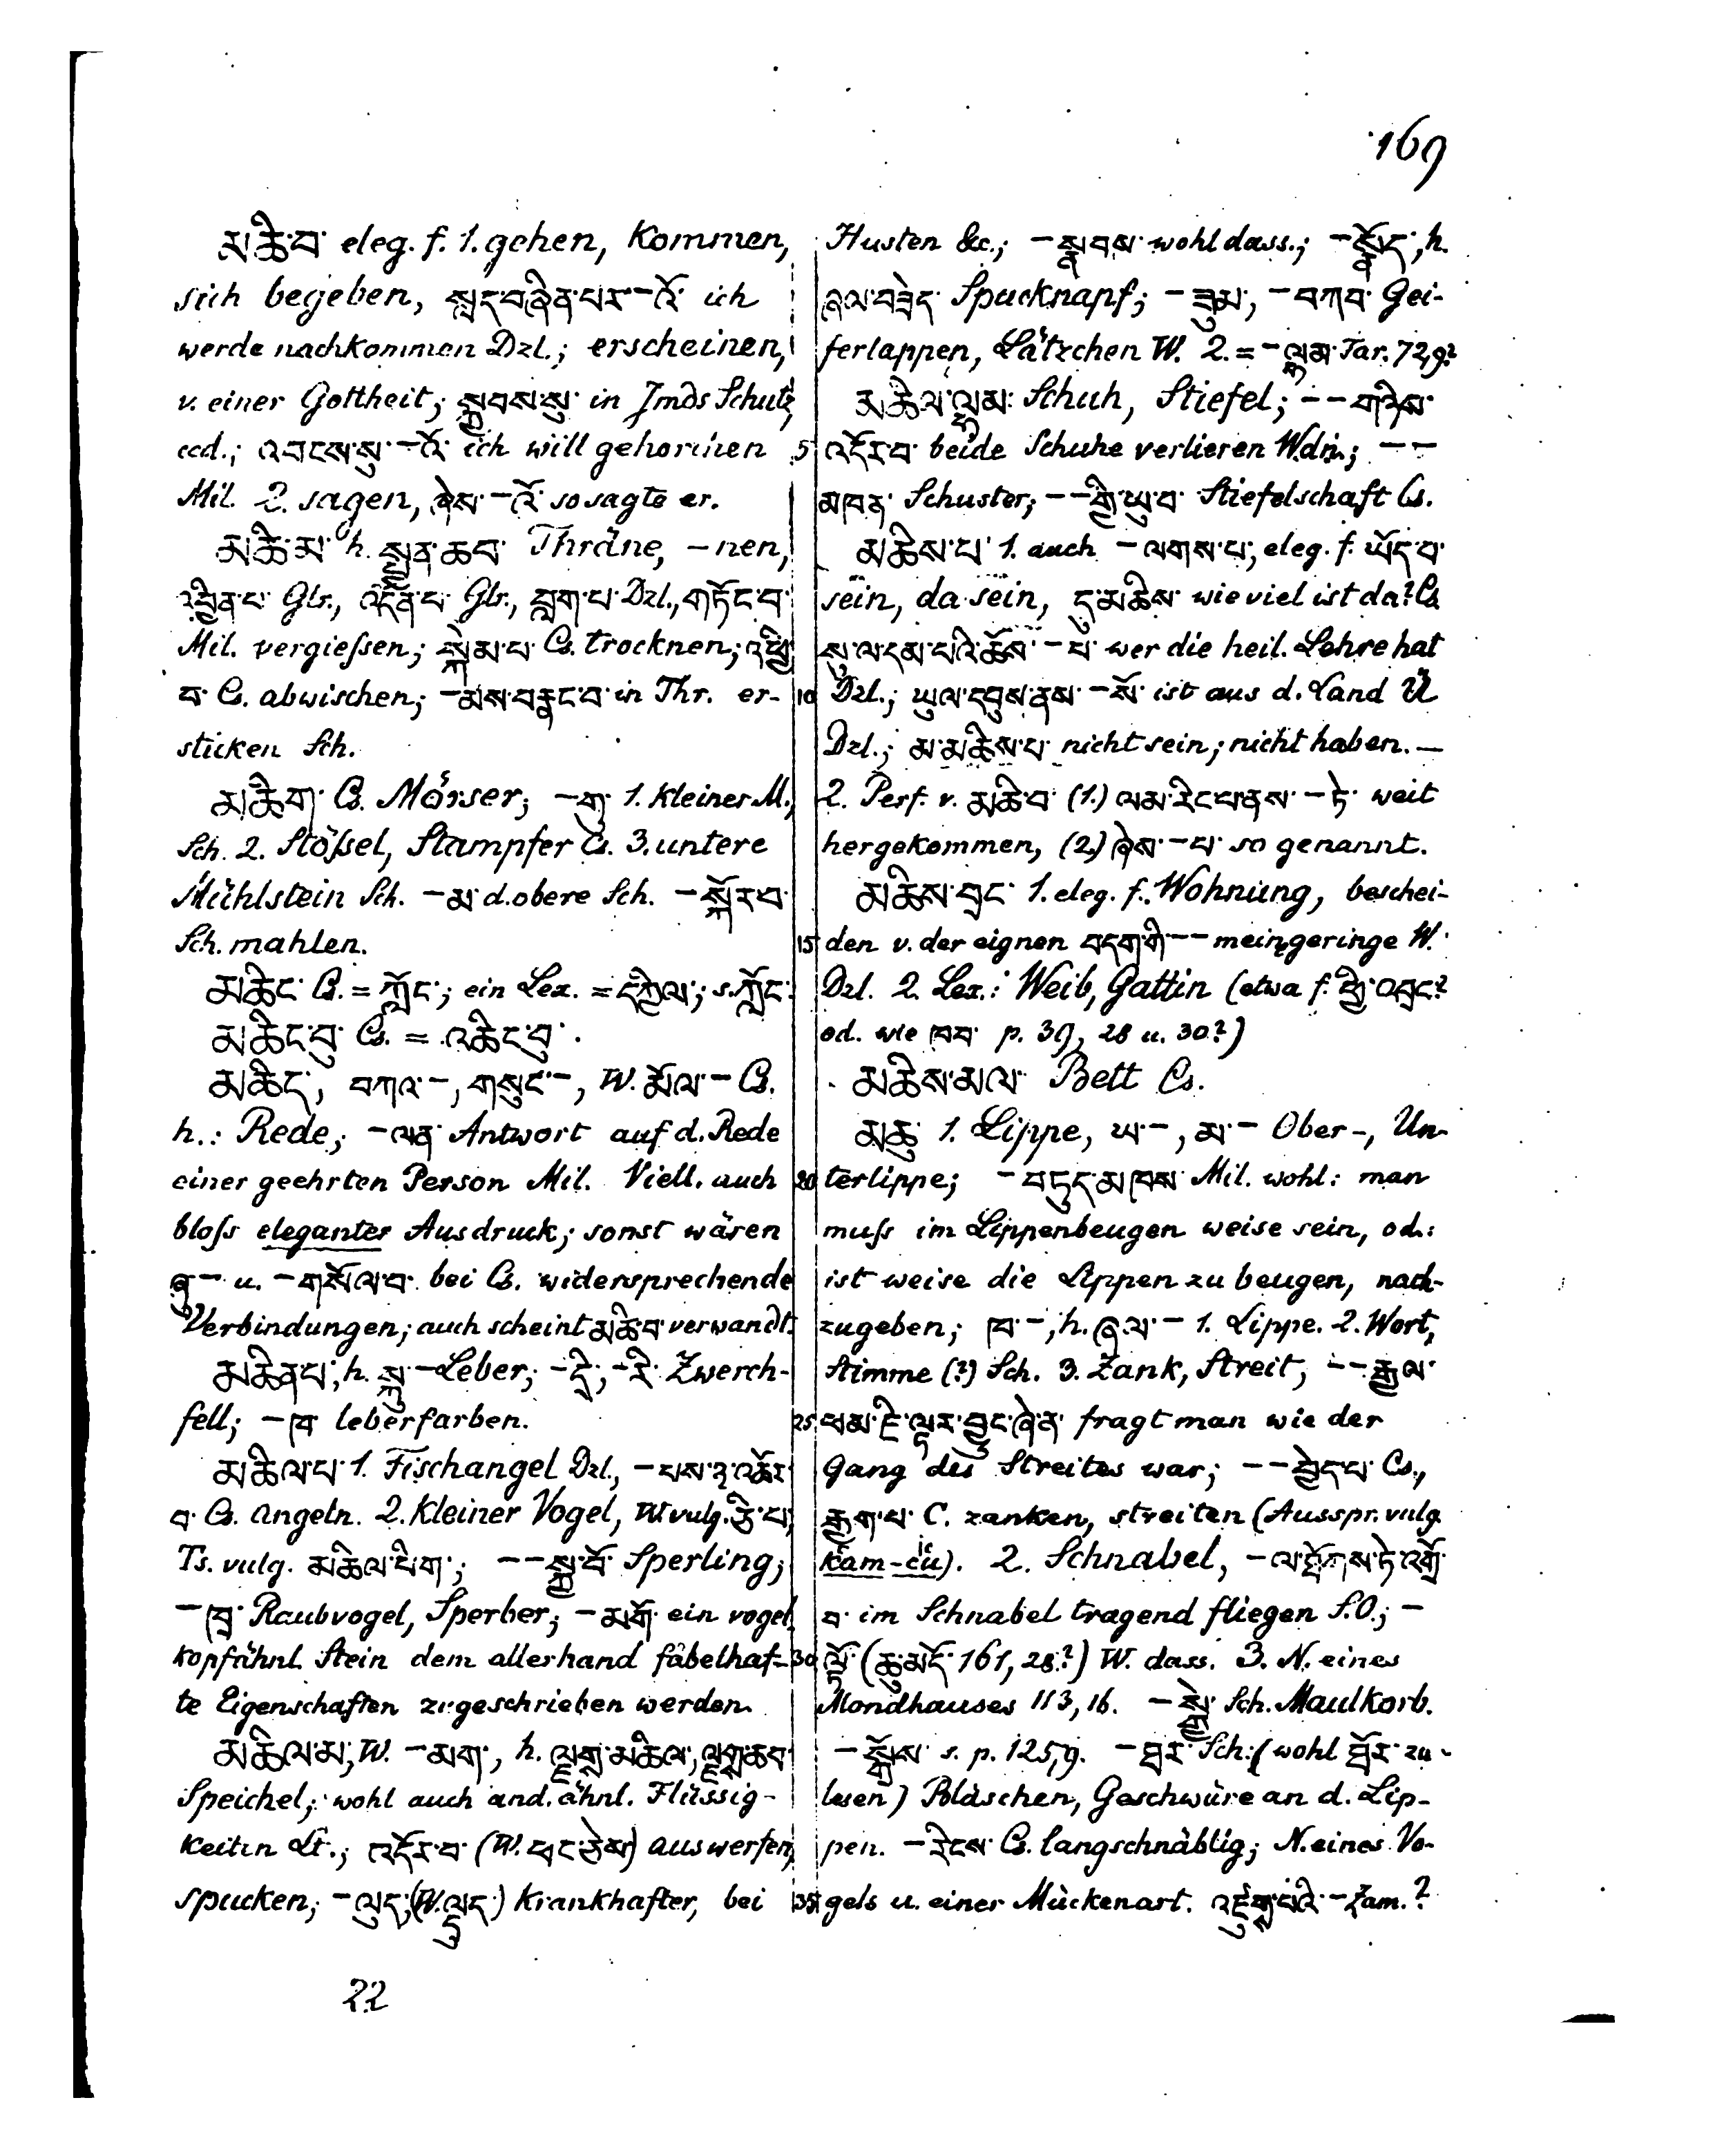 169
མཆི་བ་ eleg. f. 1. gehen, kommen,
sich begeben, སླད་བཞིན་པར་ – འོ་ ich
werde nachkommen Dzl.; erscheinen,
v. einer Gottheit; སྐྱབས་སུ་ in Jmds Schutz
ccd.; འབངས་སུ་ – འོ་ ich will gehorchen
Mil. 2. sagen, ཞེས་ – འོ་ so sagte er.
མཆི་མ་ h. སྤྱན་ཆབ་ Thräne, – nen,
འབྱིན་པ་ Glr., འདོན་པ་ Glr., བླག་པ་ Dzl., གཏོང་བ་
Mil. vergiessen; སྐེམ་པ་ Cs. trocknen; འཕྱི་
བ་ Cs. abwischen; – མས་བརྣང་བ་ in Thr. er-
sticken Sch.
མཆིག་ Cs. Mörser; – གུ་ 1. kleiner M.,
Sch. 2. Stössel, Stampfer Cs. 3. untere
Mühlstein Sch. – མ་ d. obere Sch. – སྐོར་བ་
Sch. mahlen.
མཆིང་ Cs. = ཀློང་; ein Lex. = དཀྱིལ་; s. ཀློང་
མཆིང་བུ་ Cs. = འཆིང་བུ་.
མཆིད་, བཀའ་ –, གསུང་ –, W. མོལ་ – Cs.
h.: Rede; – ལན་ Antwort auf d. Rede
einer geehrten Person Mil. Viell. auch
bloss eleganter Ausdruck; sonst wären
ཞུ་ – u. – གསོལ་བ་ bei Cs. widersprechende
Verbindungen; auch scheint མཆི་བ་ verwandt.
མཆིན་པ་, h. སྐུ་ – Leber; – དྲི་, – རི་ Zwerch-
fell; – ཁ་ leberfarben.
མཆིལ་པ་ 1. Fischangel Dzl., – པས་ཉ་འཆོར་
བ་ Cs. angeln. 2. kleiner Vogel, W. vulg. ཅི་པ་,
Ts. vulg. མཆིལ་པིག་; – – སྐྱ་བོ་ Sperling;
– ཁྲ་ Raubvogel, Sperber; – མགོ་ ein vogel-
kopfähnl. Stein dem allerhand fabelhaf-
te Eigenschaften zugeschrieben werden.
མཆིལ་མ་, W. – མག་, h. ལྗགས་མཆིལ་, ལྗགས་ཆབ་
Speichel; wohl auch and. ähnl. Flüssig-
keiten Lt.; འདོར་བ་ (W. ཕང་ཅེས་) auswerfen,
spucken; – ལུད་, (W. ལྷུད་) krankhafter, bei
22
Husten &c.; – སྣབས་ wohl dass.; – སྣོད་, h.
ཞལ་བཟེད་ Spucknapf; – ཟུམ་, – བཀབ་ Gei-
ferlappen, Lätzchen W. 2. = – ལྷམ་ Tar. 72,9?
མཆིལ་ལྷམ་ Schuh, Stiefel; – – གཉིས་
5 འདོར་བ་ beide Schuhe verlieren Wdn.; – –
མཁན་ Schuster; – – གྱི་ཡུ་བ་ Stiefelschaft Cs.
མཆིས་པ་ 1. auch – ལགས་པ་, eleg. f. ཡོད་པ་
sein, da sein, དུ་མཆིས་ wie viel ist da? Cs.
སུ་ལ་དམ་པའི་ཆོས་ – པ་ wer die heil. Lehre hat
10 Dzl.; ཡུལ་དབུས་ནས་ – སོ་ ist aus d. Land Ü
Dzl.; མ་མཆིས་པ་ nicht sein; nicht haben. –
2. Perf. v. མཆི་བ་ (1.) ལམ་རིང་པ་ནས་ – ཏེ་ weit
hergekommen, (2.) ཞེས་ – པ་ so genannt.
མཆིས་བྲང་ 1. eleg. f. Wohnung, beschei-
15 den v. der eignen བདག་གི་ – – meine geringe W.
Dzl. 2. Lex.: Weib, Gattin (etwa f. ཕྱི་འབྲང་?
od. wie ཁབ་ p. 39, 28 u. 30?)
མཆིས་མལ་ Bett Cs.
མཆུ་ 1. Lippe, ཡ་ –, མ་ – Ober-, Un-
20 terlippe; – བཏུད་མཁས་ Mil. wohl: man
muss im Lippenbeugen weise sein, od.:
ist weise die Lippen zu beugen, nach-
zugeben; ཁ་ –, h. ཞལ་ – 1. Lippe. 2. Wort,
Stimme (?) Sch. 3. Zank, Streit; – – རྒྱལ་
25 ཕམ་ཇི་ལྟར་བྱུང་ཞེ་ན་ fragt man wie der
Gang des Streites war; – – བྱེད་པ་ Cs.,
རྒྱག་པ་ C. zanken, streiten (Ausspr. vulg.
kam-ču). 2. Schnabel, – ལ་ཐོགས་ཏེ་འགྲོ་
བ་ im Schnabel tragend fliegen S.O.; –
30 ཏོ་ (ཆུ་མདོ་ 161, 28?) W. dass. 3. N. eines
Mondhauses 113, 16. – སྒྱེ་ Sch. Maulkorb.
– སྒྲོས་ s. p. 125,9. – ཐར་ Sch: (wohl ཐོར་ zu
lesen) Bläschen, Geschwüre an d. Lip-
pen. – རིངས་ Cs. langschnäblig; N. eines Vo-
35 gels u. einer Mückenart. འཇིགས་པའི་ – Zam.?